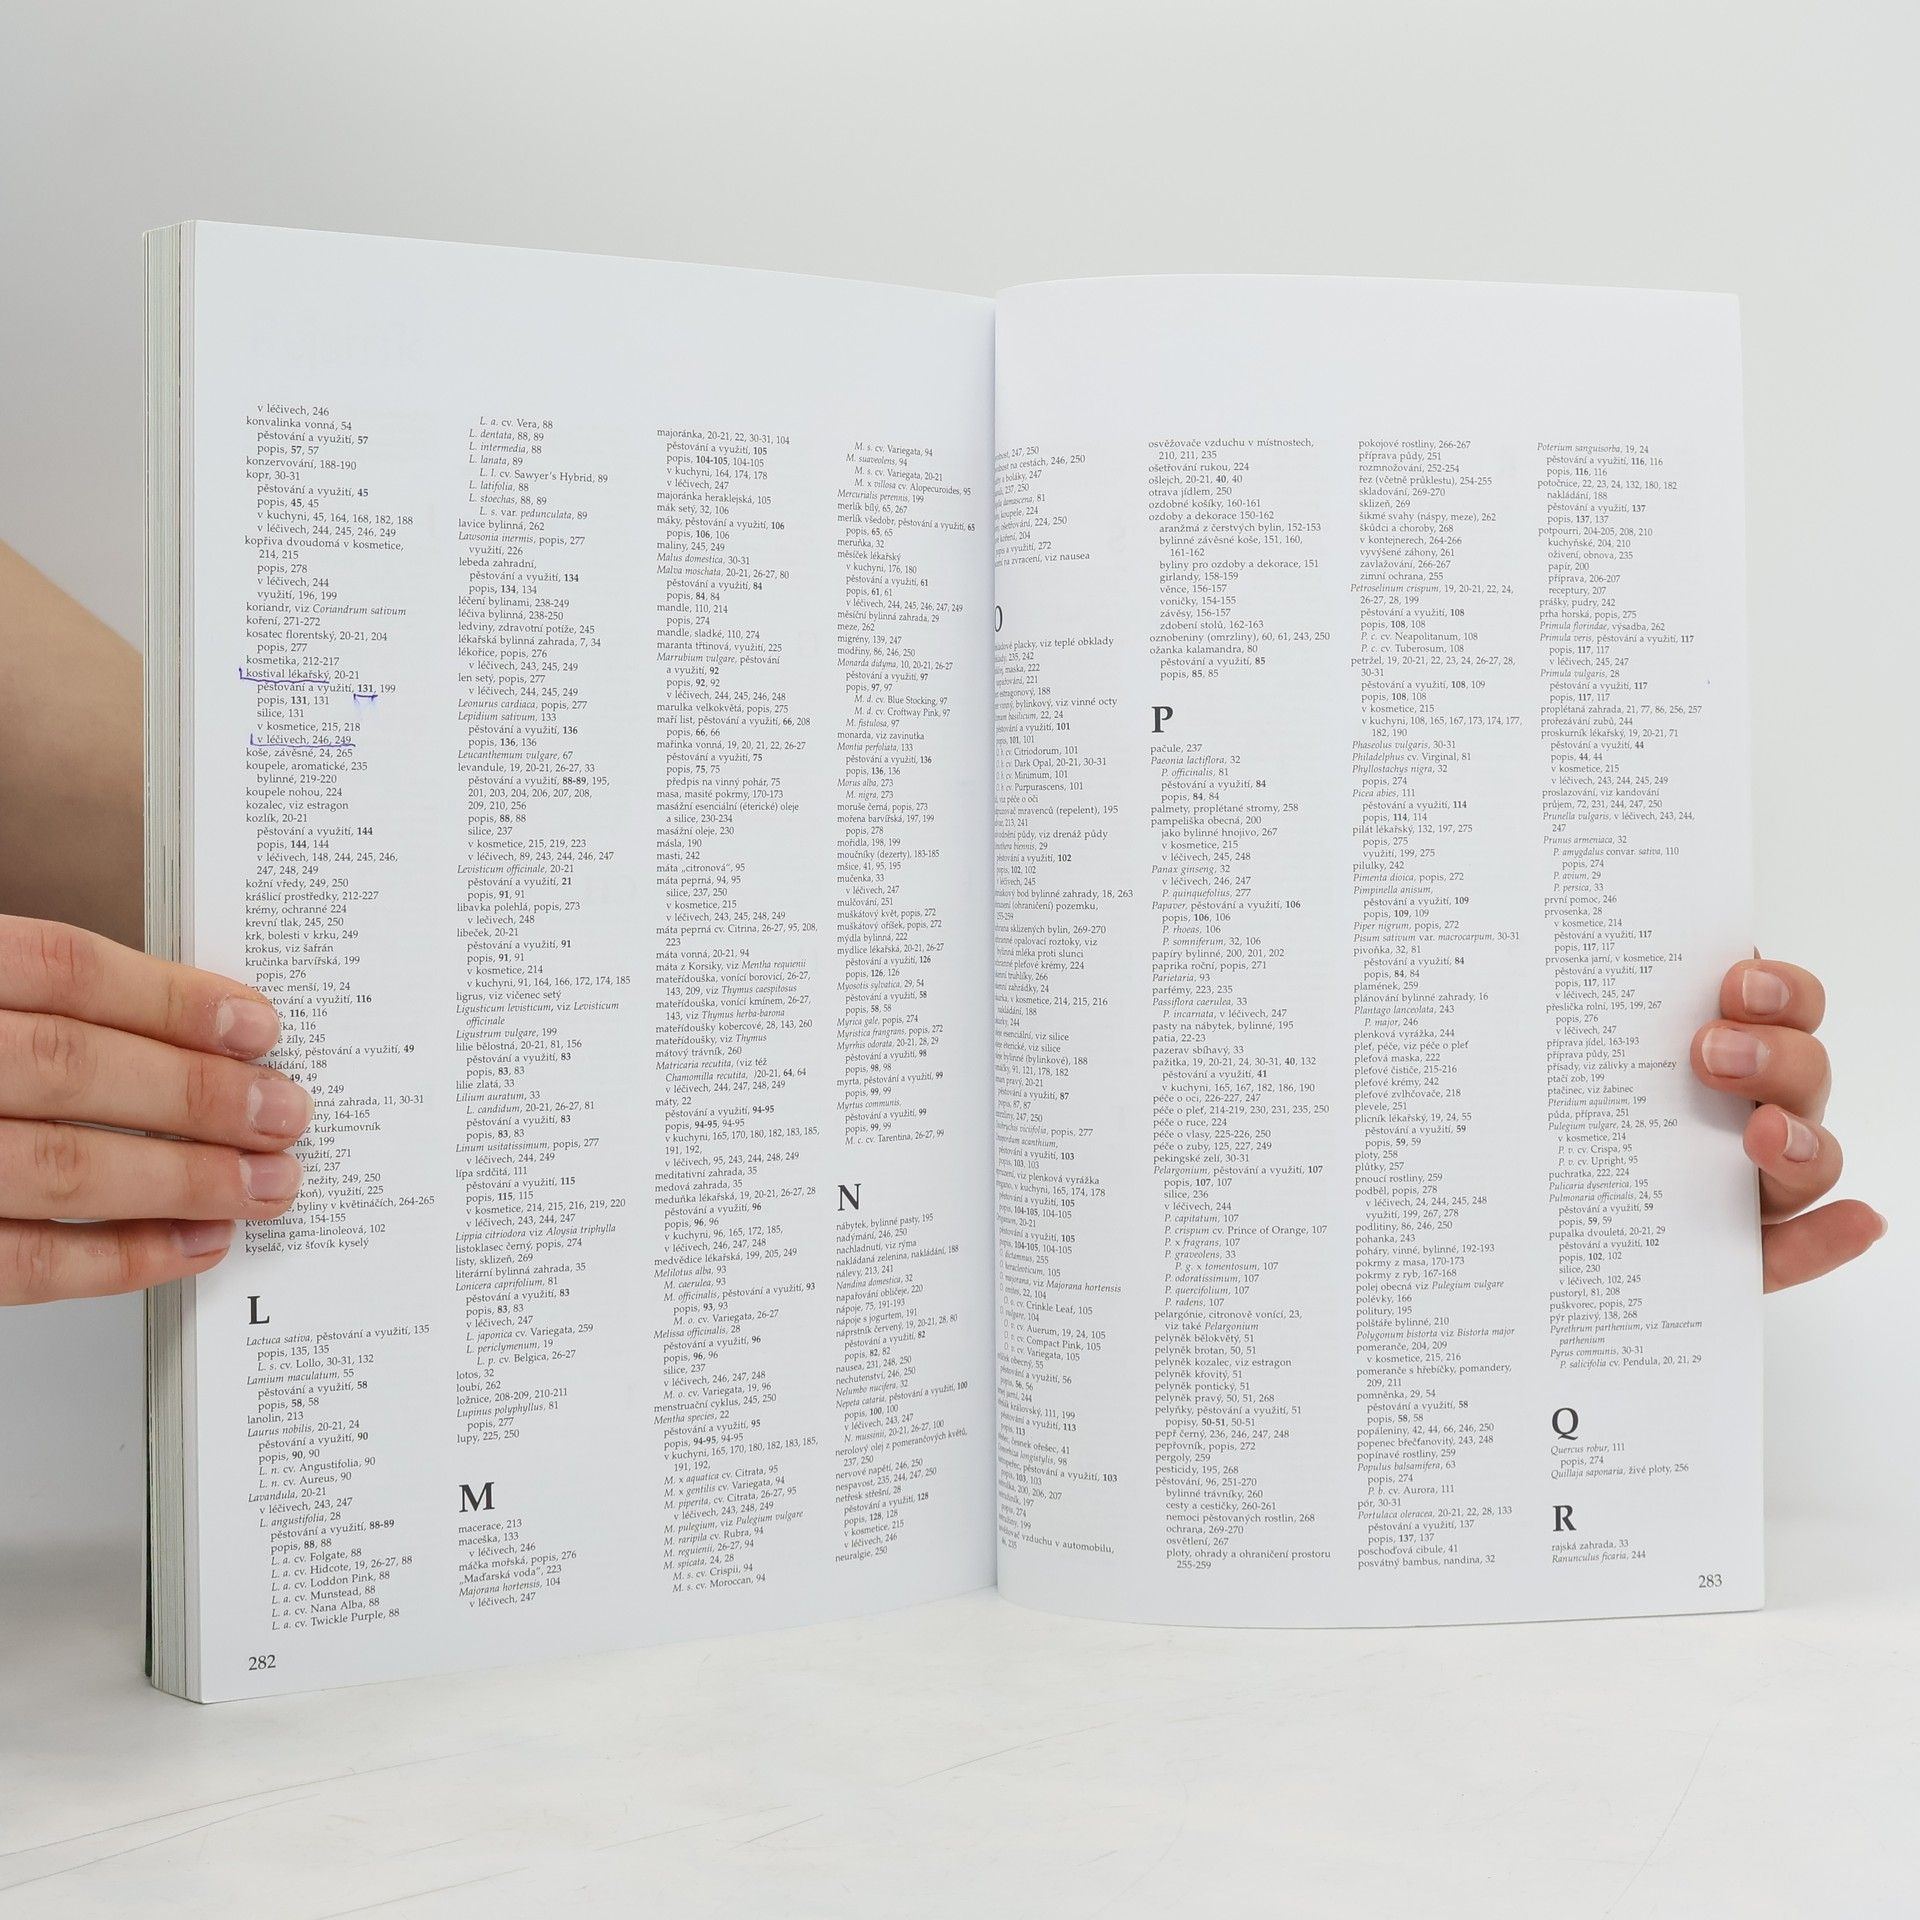 v léčivech, 246
konvalinka vonná, 54
pěstování a využití, 57
popis, 57, 57
konzervování, 188-190
kopr, 30-31
pěstování a využití, 45
popis, 45, 45
v kuchyni, 45, 164, 168, 182, 188
v léčivech, 244, 245, 246, 249
kopřiva dvoudomá v kosmetice,
214, 215
popis, 278
v léčivech, 244
využití, 196, 199
koriandr, viz Coriandrum sativum
koření, 271-272
kosatec florentský, 20-21, 204
popis, 277
kosmetika, 212-217
kostival lékařský, 20-21
pěstování a využití, 131, 199
popis, 131, 131
silice, 131
v kosmetice, 215, 218
v léčivech, 246, 249
koše, závěsné, 24, 265
koupele, aromatické, 235
bylinné, 219-220
koupele nohou, 224
kozalec, viz estragon
kozlík, 20-21
pěstování a využití, 144
popis, 144, 144
v léčivech, 148, 244, 245, 246,
247, 248, 249
kožní vředy, 249, 250
krášlicí prostředky, 212-227
krémy, ochranné 224
krevní tlak, 245, 250
krk, bolesti v krku, 249
krokus, viz šafrán
kručinka barvířská, 199
popis, 276
menší, 19, 24
a využití, 116
116, 116
116
žíly, 245
selský, pěstování a využití, 49
188
49, 49
49, 249
zahrada, 11, 30-31
164-165
kurkumovník
199
využití, 271
237
nežity, 249, 250
využití, 225
byliny v květináčích, 264-265
květomluva, 154-155
kyselina gama-linoleová, 102
kyseláč, viz šťovík kyselý
L
Lactuca sativa, pěstování a využití, 135
popis, 135, 135
L. s. cv. Lollo, 30-31, 132
Lamium maculatum, 55
pěstování a využití, 58
popis, 58, 58
lanolin, 213
Laurus nobilis, 20-21, 24
pěstování a využití, 90
popis, 90, 90
L. n. cv. Angustifolia, 90
L. n. cv. Aureus, 90
Lavandula, 20-21
v léčivech, 243, 247
L. angustifolia, 28
pěstování a využití, 88-89
popis, 88, 88
L. a. cv. Folgate, 88
L. a. cv. Hidcote, 19, 26-27, 88
L. a. cv. Loddon Pink, 88
L. a. cv. Munstead, 88
L. a. cv. Nana Alba, 88
L. a. cv. Twickle Purple, 88
282
L. a. cv. Vera, 88
L. dentata, 88, 89
L. intermedia, 88
L. lanata, 89
L. l. cv. Sawyer's Hybrid, 89
L. latifolia, 88
L. stoechas, 88, 89
L. s. var. pedunculata, 89
lavice bylinná, 262
Lawsonia inermis, popis, 277
využití, 226
lebeda zahradní,
pěstování a využití, 134
popis, 134, 134
léčení bylinami, 238-249
léčiva bylinná, 238-250
ledviny, zdravotní potíže, 245
lékařská bylinná zahrada, 7, 34
lékořice, popis, 276
v léčivech, 243, 245, 249
len setý, popis, 277
v léčivech, 244, 245, 249
Leonurus cardiaca, popis, 277
Lepidium sativum, 133
pěstování a využití, 136
popis, 136, 136
Leucanthemum vulgare, 67
levandule, 19, 20-21, 26-27, 33
pěstování a využití, 88-89, 195,
201, 203, 204, 206, 207, 208,
209, 210, 256
popis, 88, 88
silice, 237
v kosmetice, 215, 219, 223
v léčivech, 89, 243, 244, 246, 247
Levisticum officinale, 20-21
pěstování a využití, 21
popis, 91, 91
libavka polehlá, popis, 273
v lečivech, 248
libeček, 20-21
pěstování a využití, 91
popis, 91, 91
v kosmetice, 214
v kuchyni, 91, 164, 166, 172, 174, 185
ligrus, viz vičenec setý
Ligusticum levisticum, viz Levisticum
officinale
Ligustrum vulgare, 199
lilie bělostná, 20-21, 81, 156
pěstování a využití, 83
popis, 83, 83
lilie zlatá, 33
Lilium auratum, 33
L. candidum, 20-21, 26-27, 81
pěstování a využití, 83
popis, 83, 83
Linum usitatissimum, popis, 277
v léčivech, 244, 249
lípa srdčitá, 111
pěstování a využití, 115
popis, 115, 115
v kosmetice, 214, 215, 216, 219, 220
v léčivech, 243, 244, 247
Lippia citriodora viz Aloysia triphylla
listoklasec černý, popis, 274
listy, sklizeň, 269
literární bylinná zahrada, 35
Lonicera caprifolium, 81
pěstování a využití, 83
popis, 83, 83
v léčivech, 247
L. japonica cv. Variegata, 259
L. periclymenum, 19
L. p. cv. Belgica, 26-27
lotos, 32
loubí, 262
ložnice, 208-209, 210-211
Lupinus polyphyllus, 81
popis, 277
lupy, 225, 250
M
macerace, 213
maceška, 133
v léčivech, 246
máčka mořská, popis, 276
„Maďarská voda", 223
Majorana hortensis, 104
v léčivech, 247
majoránka, 20-21, 22, 30-31, 104
pěstování a využití, 105
popis, 104-105, 104-105
v kuchyni, 164, 174, 178
v léčivech, 247
majoránka heraklejská, 105
mák setý, 32, 106
máky, pěstování a využití, 106
popis, 106, 106
maliny, 245, 249
Malus domestica, 30-31
Malva moschata, 20-21, 26-27, 80
pěstování a využití, 84
popis, 84, 84
mandle, 110, 214
popis, 274
mandle, sladké, 110, 274
maranta třtinová, využití, 225
Marrubium vulgare, pěstování
a využití, 92
popis, 92, 92
v léčivech, 244, 245, 246, 248
marulka velkokvětá, popis, 275
maří list, pěstování a využití, 66, 208
popis, 66, 66
mařinka vonná, 19, 20, 21, 22, 26-27
pěstování a využití, 75
popis, 75, 75
předpis na vinný pohár, 75
masa, masité pokrmy, 170-173
masážní esenciální (éterické) oleje
a silice, 230-234
masážní oleje, 230
másla, 190
masti, 242
máta „citronová", 95
máta peprná, 94, 95
silice, 237, 250
v kosmetice, 215
v léčivech, 243, 245, 248, 249
máta peprná cv. Citrina, 26-27, 95, 208,
223
máta vonná, 20-21, 94
máta z Korsiky, viz Mentha requienii
mateřídouška, vonící borovicí, 26-27,
143, 209, viz Thymus caespitosus
mateřídouška, vonící kmínem, 26-27,
143, viz Thymus herba-barona
mateřídoušky kobercové, 28, 143, 260
mateřídoušky, viz Thymus
mátový trávník, 260
Matricaria recutita, (viz též
Chamomilla recutita, )20-21, 64, 64
v léčivech, 244, 247, 248, 249
máty, 22
pěstování a využití, 94-95
popis, 94-95, 94-95
v kuchyni, 165, 170, 180, 182, 183, 185,
191, 192,
v léčivech, 95, 243, 244, 248, 249
meditativní zahrada, 35
medová zahrada, 35
meduňka lékařská, 19, 20-21, 26-27, 28
pěstování a využití, 96
popis, 96, 96
v kuchyni, 96, 165, 172, 185,
v léčivech, 246, 247, 248
medvědice lékařská, 199, 205, 249
Melilotus alba, 93
M. caerulea, 93
M. officinalis, pěstování a využití, 93
popis, 93, 93
M. o. cv. Variegata, 26-27
Melissa officinalis, 28
pěstování a využití, 96
popis, 96, 96
silice, 237
v léčivech, 246, 247, 248
M. o. cv. Variegata, 19, 96
menstruační cyklus, 245, 250
Mentha species, 22
pěstování a využití, 95
popis, 94-95, 94-95
v kuchyni, 165, 170, 180, 182, 183, 185,
191, 192,
M. x aquatica cv. Citrata, 95
M. x gentilis cv. Variegata, 94
M. piperita, cv. Citrata, 26-27, 95
v léčivech, 243, 248, 249
M. pulegium, viz Pulegium vulgare
M. raripila cv. Rubra, 94
M. reguienii, 26-27, 94
M. spicata, 24, 28
M. s. cv. Crispii, 94
M. s. cv. Moroccan, 94
M. s. cv. Variegata, 94
M. suaveolens, 94
M. s. cv. Variegata, 20-21
M. x villosa cv. Alopecuroides, 95
Mercurialis perennis, 199
merlík bílý, 65, 267
merlík všedobr, pěstování a využití, 65
popis, 65, 65
meruňka, 32
měsíček lékařský
v kuchyni, 176, 180
pěstování a využití, 61
popis, 61, 61
v léčivech, 244, 245, 246, 247, 249
měsíční bylinná zahrada, 29
meze, 262
migrény, 139, 247
modřiny, 86, 246, 250
Monarda didyma, 10, 20-21, 26-27
pěstování a využití, 97
popis, 97, 97
M. d. cv. Blue Stocking, 97
M. d. cv. Croftway Pink, 97
M. fistulosa, 97
monarda, viz zavinutka
Montia perfoliata, 133
pěstování a využití, 136
popis, 136, 136
Morus alba, 273
M. nigra, 273
moruše černá, popis, 273
mořena barvířská, 197, 199
popis, 278
mořidla, 198, 199
moučníky (dezerty), 183-185
mšice, 41, 95, 195
mučenka, 33
v léčivech, 247
mulčování, 251
muškátový květ, popis, 272
muškátový oříšek, popis, 272
mýdla bylinná, 222
mydlice lékařská, 20-21, 26-27
pěstování a využití, 126
popis, 126, 126
Myosotis sylvatica, 29, 54
pěstování a využití, 58
popis, 58, 58
Myrica gale, popis, 274
Myristica frangrans, popis, 272
Myrrhis odorata, 20-21, 28, 29
pěstování a využití, 98
popis, 98, 98
myrta, pěstování a využití, 99
popis, 99, 99
Myrtus communis,
pěstování a využití, 99
popis, 99, 99
M. c. cv. Tarentina, 26-27, 99
N
nábytek, bylinné pasty, 195
nadýmání, 246, 250
nachladnutí, viz rýma
nakládaná zelenina, nakládání, 188
nálevy, 213, 241
Nandina domestica, 32
napařování obličeje, 220
nápoje, 75, 191-193
nápoje s jogurtem, 191
náprstník červený, 19, 20-21, 28, 80
pěstování a využití, 82
popis, 82, 82
nausea, 231, 248, 250
nechutenství, 246, 250
Nelumbo nucifera, 32
Nepeta cataria, pěstování a využití, 100
popis, 100, 100
v léčivech, 243, 247
N. mussinii, 20-21, 26-27, 100
nerolový olej z pomerančových květů,
237, 250
nervové napětí, 246, 250
nespavost, 235, 244, 247, 250
netřesk střešní, 28
pěstování a využití, 128
popis, 128, 128
v kosmetice, 215
v léčivech, 246
neuralgie, 250
247, 250
na cestách, 246, 250
a boláky, 247
237, 250
damascena, 81
koupele, 224
ošetřování, 224, 250
koření, 204
a využití, 272
na zvracení, viz nausea
O
placky, viz teplé obklady
235, 242
maska, 222
221
estragonový, 188
vinný, bylinkový, viz vinné octy
basilicum, 22, 24
pěstování a využití, 101
popis, 101, 101
cv. Citriodorum, 101
cv. Dark Opal, 20-21, 30-31
cv. Minimum, 101
cv. Purpurascens, 101
viz péče o oči
mravenců (repelent), 195
213, 241
půdy, viz drenáž půdy
biennis, 29
pěstování a využití, 102
popis, 102, 102
v léčivech, 245
bod bylinné zahrady, 18, 263
(ohraničení) pozemku,
255-259
sklizených bylin, 269-270
opalovací roztoky, viz
mléka proti slunci
pleťové krémy, 224
truhlíky, 266
zahrádky, 24
v kosmetice, 214, 215, 216
nakládání, 188
244
esenciální, viz silice
éterické, viz silice
bylinné (bylinkové), 188
91, 121, 178, 182
pravý, 20-21
pěstování a využití, 87
popis, 87, 87
247, 250
popis, 277
acanthium,
pěstování a využití, 103
popis, 103, 103
viz plenková vyrážka
v kuchyni, 165, 174, 178
pěstování a využití, 105
popis, 104-105, 104-105
20-21
pěstování a využití, 105
popis, 104-105, 104-105
dictamnus, 255
heracleoticum, 105
majorana, viz Majorana hortensis
22, 104
cv. Crinkle Leaf, 105
vulgare, 104
cv. Auerum, 19, 24, 105
cv. Compact Pink, 105
cv. Variegata, 105
obecný, 55
pěstování a využití, 56
popis, 56, 56
244
královský, 111, 199
pěstování a využití, 113
popis, 113
česnek ořešec, 41
longistylis, 98
pěstování a využití, 103
popis, 103, 103
200, 206, 207
197
popis, 274
199
vzduchu v automobilu,
235
osvěžovače vzduchu v místnostech,
210, 211, 235
ošetřování rukou, 224
ošlejch, 20-21, 40, 40
otrava jídlem, 250
ozdobné košíky, 160-161
ozdoby a dekorace 150-162
aranžmá z čerstvých bylin, 152-153
bylinné závěsné koše, 151, 160,
161-162
byliny pro ozdoby a dekorace, 151
girlandy, 158-159
věnce, 156-157
voničky, 154-155
závěsy, 156-157
zdobení stolů, 162-163
oznobeniny (omrzliny), 60, 61, 243, 250
ožanka kalamandra, 80
pěstování a využití, 85
popis, 85, 85
P
pačule, 237
Paeonia lactiflora, 32
P. officinalis, 81
pěstování a využití, 84
popis, 84, 84
palmety, proplétané stromy, 258
pampeliška obecná, 200
jako bylinné hnojivo, 267
v kosmetice, 215
v léčivech, 245, 248
Panax ginseng, 32
v léčivech, 246, 247
P. quinquefolius, 277
Papaver, pěstování a využití, 106
popis, 106, 106
P. rhoeas, 106
P. somniferum, 32, 106
papíry bylinné, 200, 201, 202
paprika roční, popis, 271
Parietaria, 93
parfémy, 223, 235
Passiflora caerulea, 33
P. incarnata, v léčivech, 247
pasty na nábytek, bylinné, 195
patia, 22-23
pazerav sbíhavý, 33
pažitka, 19, 20-21, 24, 30-31, 40, 132
pěstování a využití, 41
v kuchyni, 165, 167, 182, 186, 190
péče o oči, 226-227, 247
péče o pleť, 214-219, 230, 231, 235, 250
péče o ruce, 224
péče o vlasy, 225-226, 250
péče o zuby, 125, 227, 249
pekingské zelí, 30-31
Pelargonium, pěstování a využití, 107
popis, 107, 107
silice, 236
v léčivech, 244
P. capitatum, 107
P. crispum cv. Prince of Orange, 107
P. x fragrans, 107
P. graveolens, 33
P. g. x tomentosum, 107
P. odoratissimum, 107
P. quercifolium, 107
P. radens, 107
pelargónie, citronově vonící, 23,
viz také Pelargonium
pelyněk bělokvětý, 51
pelyněk brotan, 50, 51
pelyněk kozalec, viz estragon
pelyněk křovitý, 51
pelyněk pontický, 51
pelyněk pravý, 50, 51, 268
pelyňky, pěstování a využití, 51
popisy, 50-51, 50-51
pepř černý, 236, 246, 247, 248
pepřovník, popis, 272
pergoly, 259
pesticidy, 195, 268
pěstování, 96, 251-270
bylinné trávníky, 260
cesty a cestičky, 260-261
nemoci pěstovaných rostlin, 268
ochrana, 269-270
osvětlení, 267
ploty, ohrady a ohraničení prostoru
255-259
pokojové rostliny, 266-267
příprava půdy, 251
rozmnožování, 252-254
řez (včetně průklestu), 254-255
skladování, 269-270
sklizeň, 269
šikmé svahy (náspy, meze), 262
škůdci a choroby, 268
v kontejnerech, 264-266
vyvýšené záhony, 261
zavlažování, 266-267
zimní ochrana, 255
Petroselinum crispum, 19, 20-21, 22, 24,
26-27, 28, 199
pěstování a využití, 108
popis, 108, 108
P. c. cv. Neapolitanum, 108
P. c. cv. Tuberosum, 108
petržel, 19, 20-21, 22, 23, 24, 26-27, 28,
30-31
pěstování a využití, 108, 109
popis, 108, 108
v kosmetice, 215
v kuchyni, 108, 165, 167, 173, 174, 177,
182, 190
Phaseolus vulgaris, 30-31
Philadelphus cv. Virginal, 81
Phyllostachys nigra, 32
popis, 274
Picea abies, 111
pěstování a využití, 114
popis, 114, 114
pilát lékařský, 132, 197, 275
popis, 275
využití, 199, 275
pilulky, 242
Pimenta dioica, popis, 272
Pimpinella anisum,
pěstování a využití, 109
popis, 109, 109
Piper nigrum, popis, 272
Pisum sativum var. macrocarpum, 30-31
pivoňka, 32, 81
pěstování a využití, 84
popis, 84, 84
plamének, 259
plánování bylinné zahrady, 16
Plantago lanceolata, 243
P. major, 246
plenková vyrážka, 244
pleť, péče, viz péče o pleť
pleťová maska, 222
pleťové čističe, 215-216
pleťové krémy, 242
pleťové zvlhčovače, 218
plevele, 251
plicník lékařský, 19, 24, 55
pěstování a využití, 59
popis, 59, 59
ploty, 258
plůtky, 257
pnoucí rostliny, 259
podběl, popis, 278
v léčivech, 24, 244, 245, 248
využití, 199, 267, 278
podlitiny, 86, 246, 250
pohanka, 243
poháry, vinné, bylinné, 192-193
pokrmy z masa, 170-173
pokrmy z ryb, 167-168
polej obecná viz Pulegium vulgare
polévky, 166
politury, 195
polštáře bylinné, 210
Polygonum bistorta viz Bistorta major
pomeranče, 204, 209
v kosmetice, 215, 216
pomeranče s hřebíčky, pomandery,
209, 211
pomněnka, 29, 54
pěstování a využití, 58
popis, 58, 58
popáleniny, 42, 44, 66, 246, 250
popenec břečťanovitý, 243, 248
popínavé rostliny, 259
Populus balsamifera, 63
popis, 274
P. b. cv. Aurora, 111
pór, 30-31
Portulaca oleracea, 20-21, 22, 28, 133
pěstování a využití, 137
popis, 137, 137
poschoďová cibule, 41
posvátný bambus, nandina, 32
Poterium sanguisorba, 19, 24
pěstování a využití, 116, 116
popis, 116, 116
potočnice, 22, 23, 24, 132, 180, 182
nakládání, 188
pěstování a využití, 137
popis, 137, 137
potpourri, 204-205, 208, 210
kuchyňské, 204, 210
oživení, obnova, 235
papír, 200
příprava, 206-207
receptury, 207
prášky, pudry, 242
prha horská, popis, 275
Primula florindae, výsadba, 262
Primula veris, pěstování a využití, 117
popis, 117, 117
v léčivech, 245, 247
Primula vulgaris, 28
pěstování a využití, 117
popis, 117, 117
proplétaná zahrada, 21, 77, 86, 256, 257
prořezávání zubů, 244
proskurník lékařský, 19, 20-21, 71
pěstování a využití, 44
popis, 44, 44
v kosmetice, 215
v léčivech, 243, 244, 245, 249
proslazování, viz kandování
průjem, 72, 231, 244, 247, 250
Prunella vulgaris, v léčivech, 243, 244,
247
Prunus armeniaca, 32
P. amygdalus convar. sativa, 110
popis, 274
P. avium, 29
P. persica, 33
první pomoc, 246
prvosenka, 28
v kosmetice, 214
pěstování a využití, 117
popis, 117, 117
prvosenka jarní, v kosmetice, 214
pěstování a využití, 117
popis, 117, 117
v léčivech, 245, 247
přeslička rolní, 195, 199, 267
popis, 276
v léčivech, 247
příprava jídel, 163-193
příprava půdy, 251
přísady, viz zálivky a majonézy
ptačí zob, 199
ptačinec, viz žabinec
Pteridium aquilinum, 199
půda, příprava, 251
Pulegium vulgare, 24, 28, 95, 260
v kosmetice, 214
P. v. cv. Crispa, 95
P. v. cv. Upright, 95
puchratka, 222, 224
Pulicaria dysenterica, 195
Pulmonaria officinalis, 24, 55
pěstování a využití, 59
popis, 59, 59
pupalka dvouletá, 20-21, 29
pěstování a využití, 102
popis, 102, 102
silice, 230
v léčivech, 102, 245
pustoryl, 81, 208
puškvorec, popis, 275
pýr plazivý, 138, 268
Pyrethrum parthenium, viz Tanacetum
parthenium
Pyrus communis, 30-31
P. salicifolia cv. Pendula, 20, 21, 29
Q
Quercus robur, 111
popis, 274
Quillaja saponaria, živé ploty, 256
R
rajská zahrada, 33
Ranunculus ficaria, 244
283